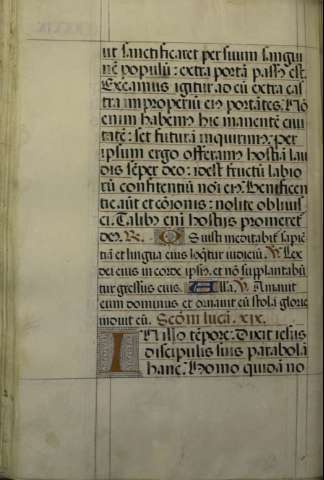 ut sanctificaret per suum sangui
nē populū: extra portā passꝰ est.
Exeamus igitur ad eū extra cas
tra improperiū eiꝰ portātes. Nō
enim habemꝰ hic manentē ciui
tatē: set futurā inquirimꝰ. per
ipsum ergo offeramꝰ hostiā lau
dis sēper deo: id est fructū labio
rū confitentiū noī eiꝰ. Beneficen
tie aūt et cōionis: nolite obliuis
ci. Talibꝰ enī hostiis promeret
deꝰ. R̄. Os iusti meditabit̄ sapiē
tiā et lingua eius loq̄tur iudiciū. V̄. Lex
dei eius in corde ipsiꝰ. et nō supplantabū
tur gressus eius. Alła. V̄. Amauit
eum dominus et ornauit eū stolā glorie
induit eū. Scḋm lucā. xix.
In illo tēpore: Dixit iesus
discipulis suis parabolā
hanc. Homo quidā no